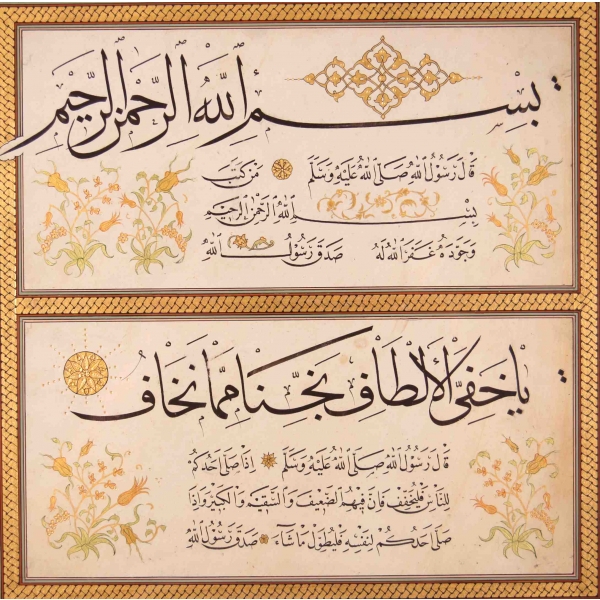 بِسْمِ اللّٰهِ الرَّحْمٰنِ الرَّحِيْمِ
قَالَ رَسُوْلُ اللّٰهِ صَلَّى اللّٰهُ عَلَيْهِ وَسَلَّمَ مَنْ كَتَبَ
بِسْمِ اللّٰهِ الرَّحْمٰنِ الرَّحِيْمِ
وَجَوَّدَهُ غَفَرَ اللّٰهُ لَهُ صَدَقَ رَسُوْلُ اللّٰهِ
يَا خَفِيَّ الْأَلْطَافِ نَجِّنَا مِمَّا نَخَافُ
قَالَ رَسُوْلُ اللّٰهِ صَلَّى اللّٰهُ عَلَيْهِ وَسَلَّمَ اِذَا صَلَّى اَحَدُكُمْ
لِلنَّاسِ فَلْيُخَفِّفْ فَاِنَّ فِيْهِمُ الضَّعِيْفَ وَالسَّقِيْمَ وَالْكَبِيْرَ وَاِذَا
صَلَّى اَحَدُكُمْ لِنَفْسِهِ فَلْيُطَوِّلْ مَا شَاءَ صَدَقَ رَسُوْلُ اللّٰهِ